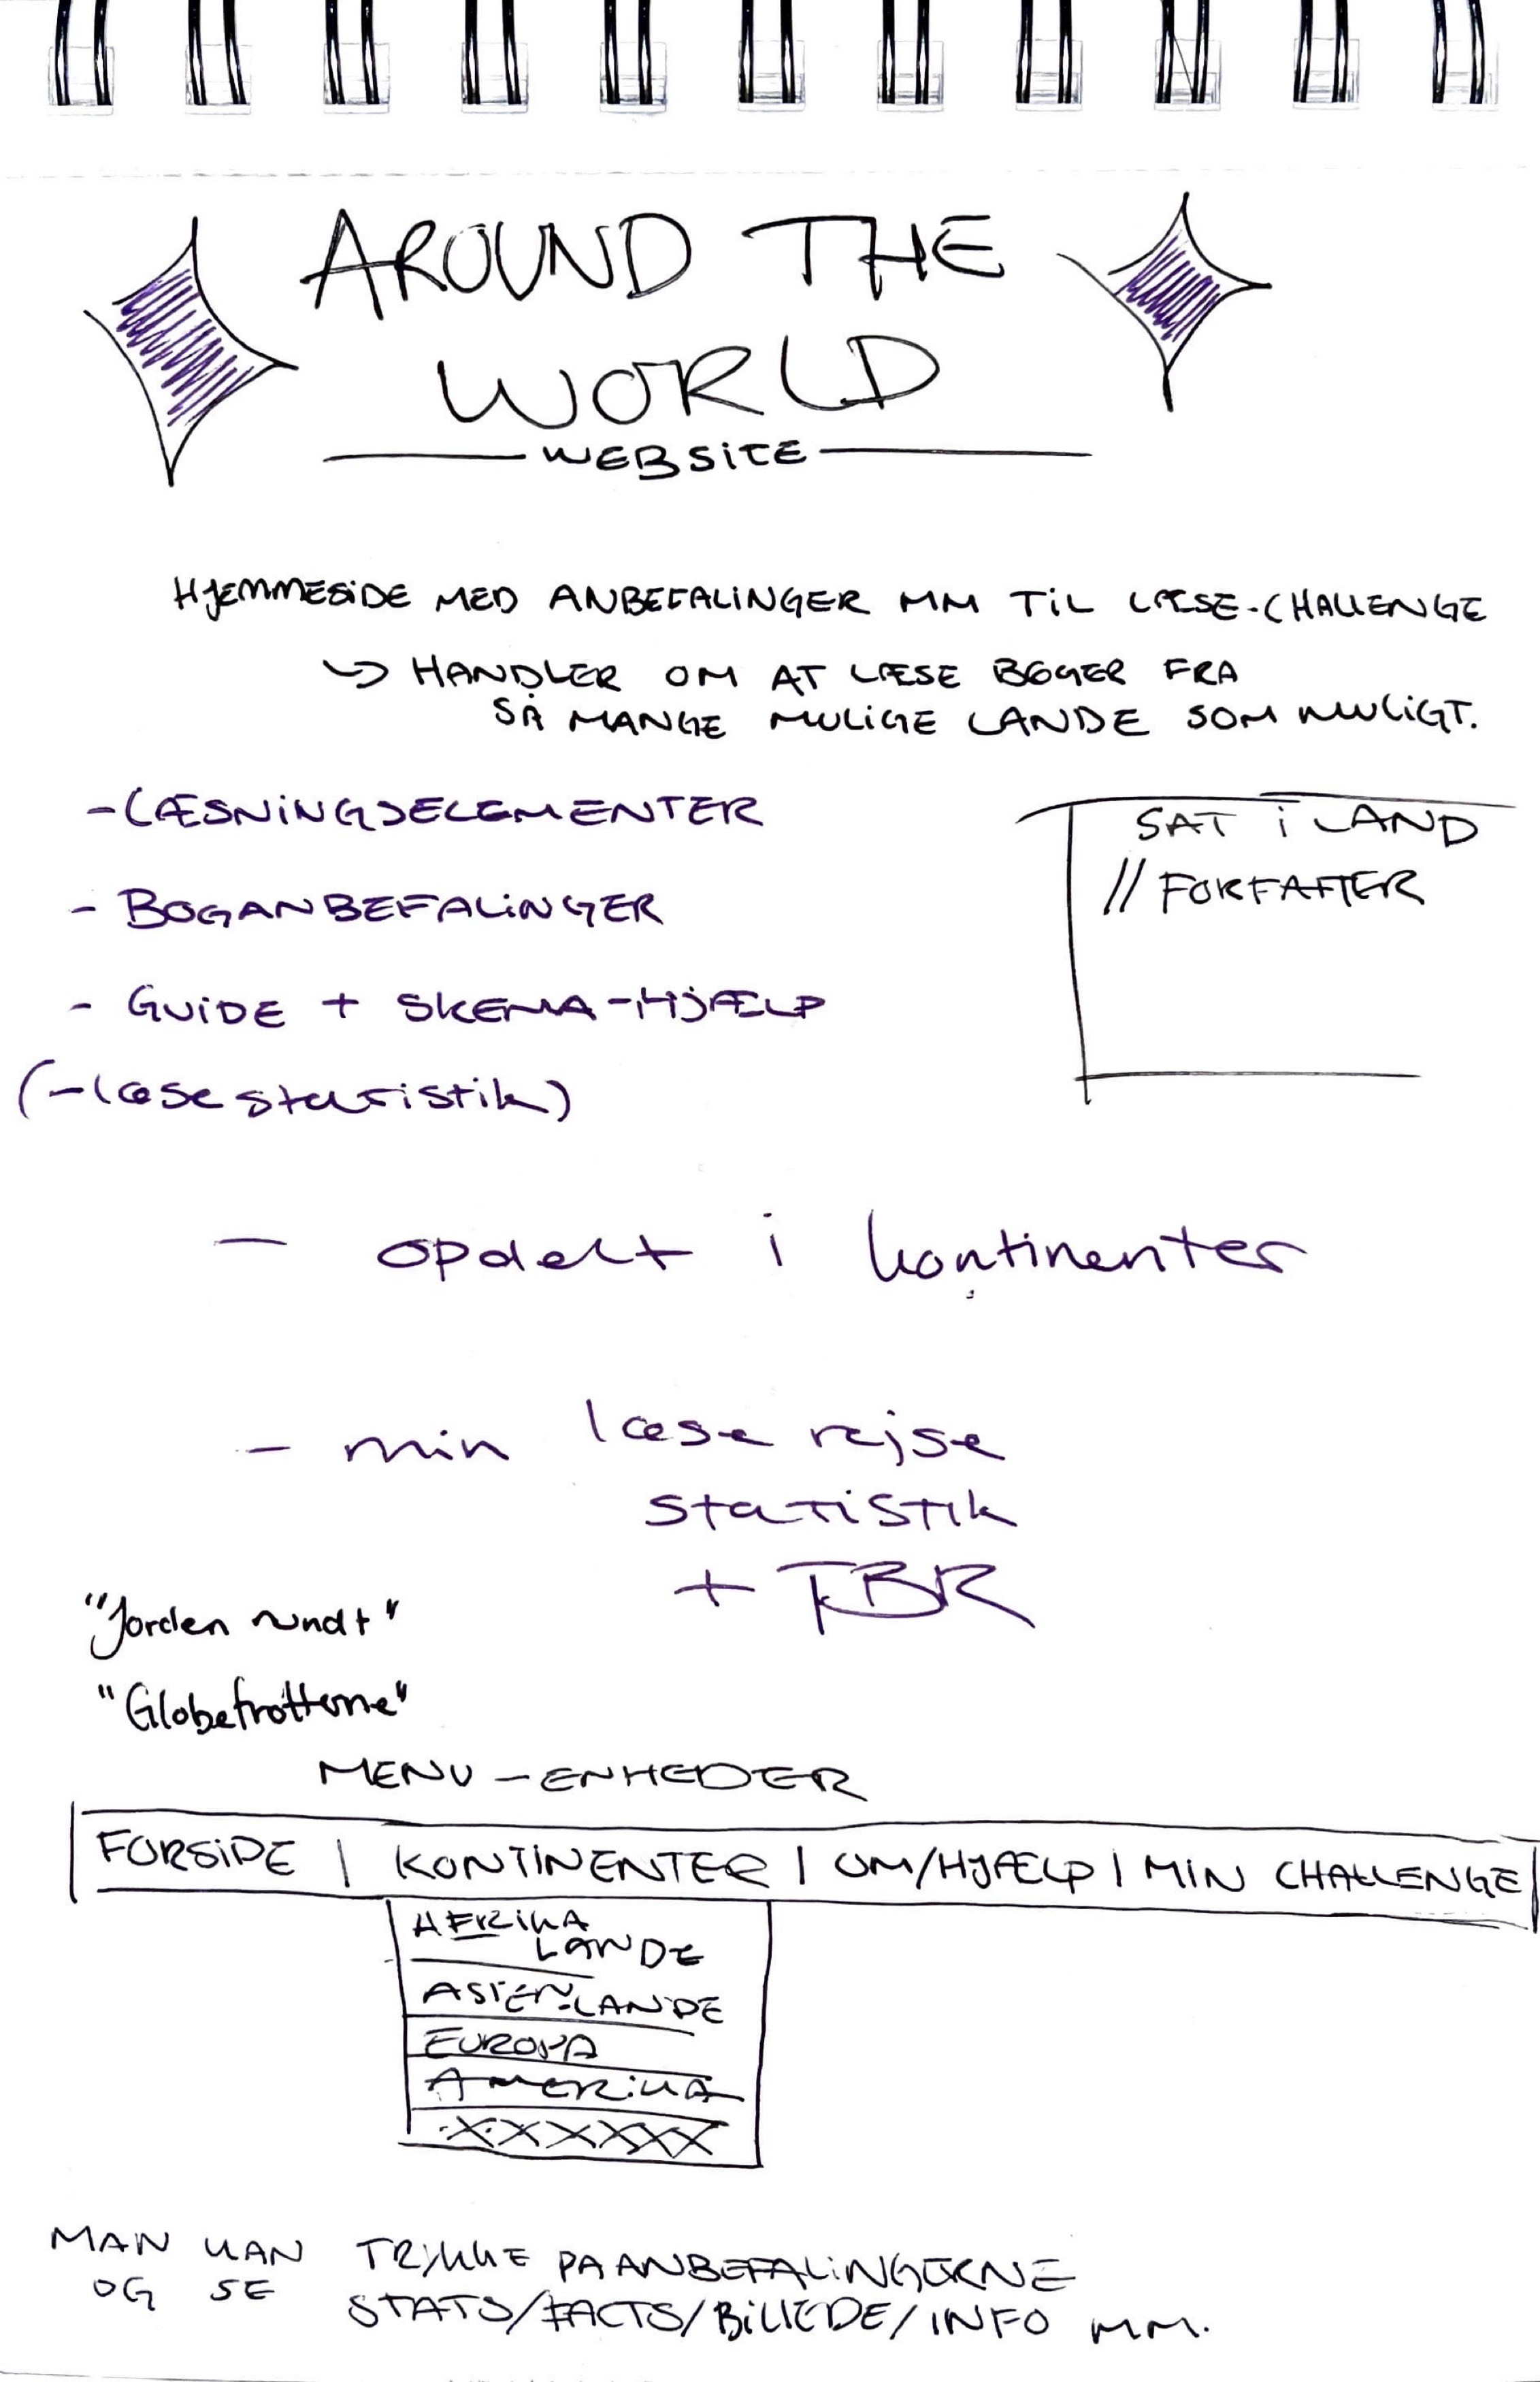 AROUND THE
WORLD
WEBSITE
HJEMMESIDE MED ANBEFALINGER MM TIL LÆSE-CHALLENGE
↳ HANDLER OM AT LÆSE BØGER FRA
SÅ MANGE MULIGE LANDE SOM MULIGT.
- LÆSNINGSELEMENTER
- BOGANBEFALINGER
- GUIDE + SKEMA-HJÆLP
(- læse statistik)
SAT I LAND
// FORFATTER
- opdelt i kontinenter
- min læse rejse
statistik
+ TBR
"Jorden rundt"
"Globetrotterne"
MENU - ENHEDER
FORSIDE | KONTINENTER | OM/HJÆLP | MIN CHALLENGE
AFRIKA
LANDE
ASIEN-LANDE
EUROPA
AMERIKA
XXXXXX
MAN KAN TRYKKE PÅ ANBEFALINGERNE
OG SE STATS/FACTS/BILLEDE/INFO MM.